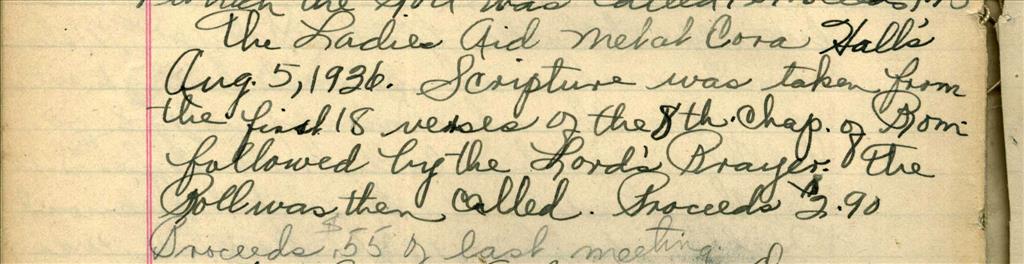 the Roll was called. Proceeds
The Ladies Aid met at Cora Hall's
Aug. 5, 1936. Scripture was taken from
the first 18 verses of the 8th. Chap. of Rom.
followed by the Lord's Prayer. The
Roll was then called. Proceeds $2.90
Proceeds $.55 of last meeting.